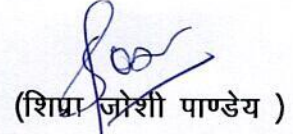 (शिप्रा जोशी पाण्डेय )